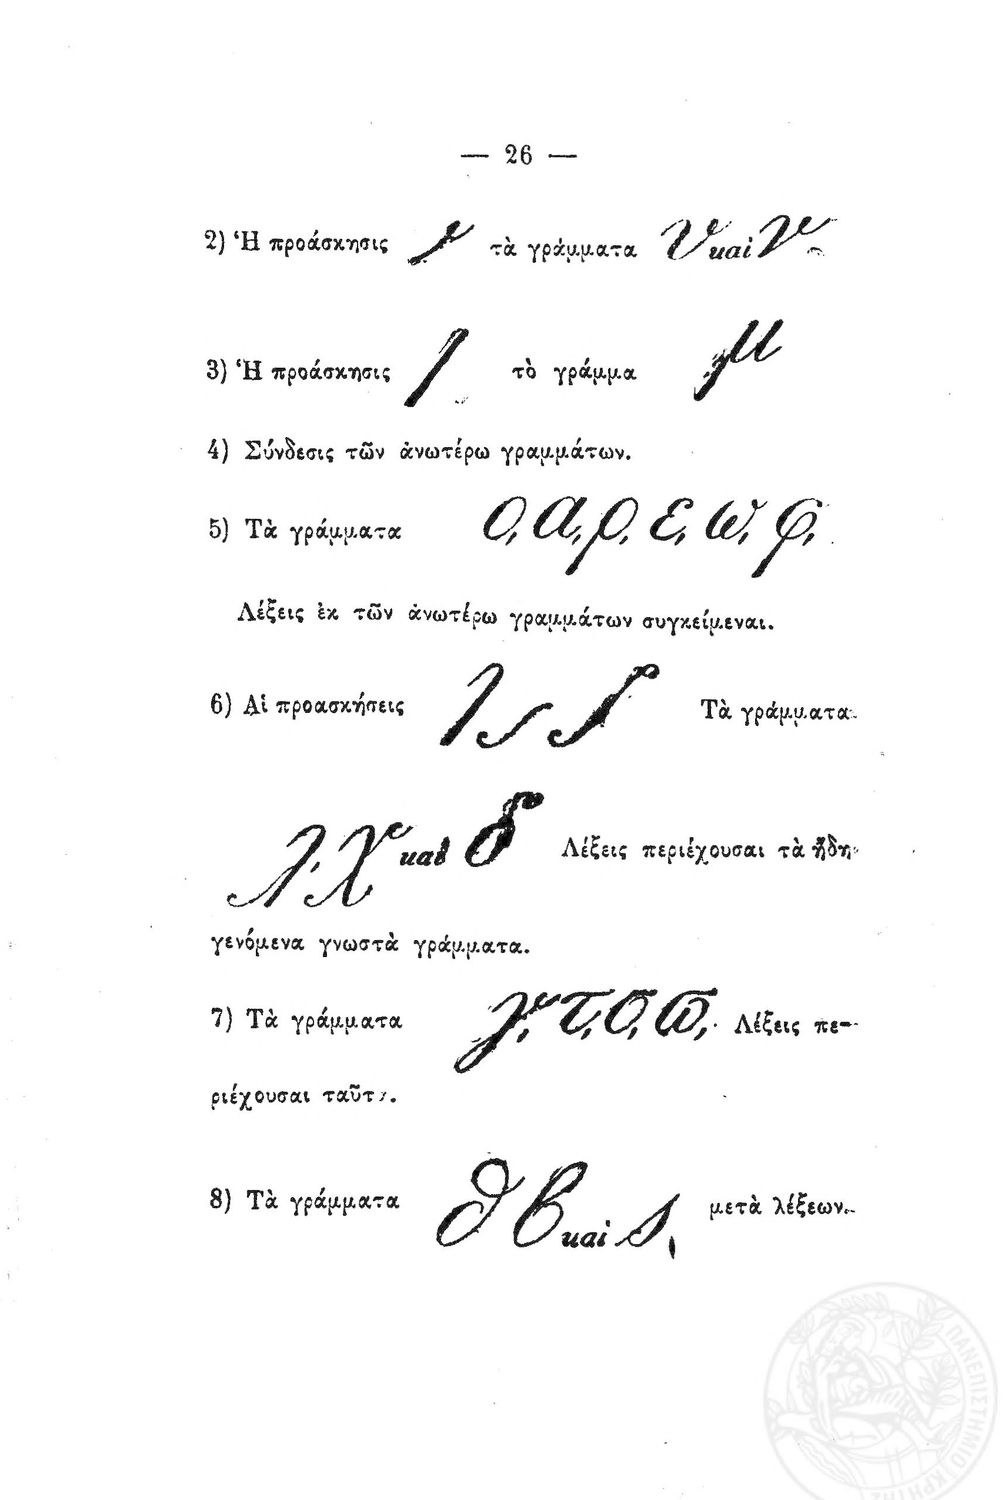 — 26 —
2) Ἡ προάσκησις τὰ γράμματα υ καὶ ν
3) Ἡ προάσκησις τὸ γράμμα μ
4) Σύνδεσις τῶν ἀνωτέρω γραμμάτων.
5) Τὰ γράμματα ο, α, ρ, ε, ω, φ,
Λέξεις ἐκ τῶν ἀνωτέρω γραμμάτων συγκείμεναι.
6) Αἱ προασκήσεις Τὰ γράμματα
λ, χ καὶ δ Λέξεις περιέχουσαι τὰ ἤδη
γενόμενα γνωστὰ γράμματα.
7) Τὰ γράμματα γ, τ, σ, ϖ, Λέξεις πε-
ριέχουσαι ταῦτα.
8) Τὰ γράμματα θ β καὶ ς, μετὰ λέξεων.
ΠΑΝΕΠΙΣΤΗΜΙΟ ΚΡΗΤΗΣ